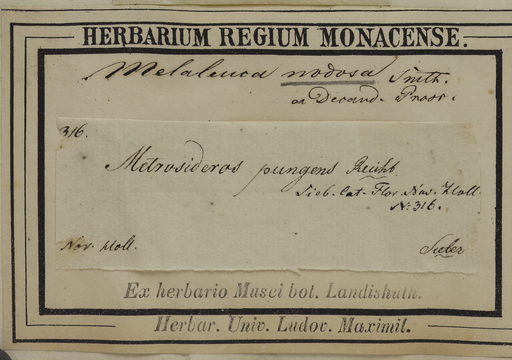 HERBARIUM REGIUM MONACENSE.
Melaleuca nodosa Smith.
Decand. Prodr.
316.
Metrosideros pungens Reichb.
Sieb. Cat. Flor. Nov. Holl.
N. 316.
Nov. Holl.
Sieber
Ex herbario Musei bot. Landishuth.
Herbar. Univ. Ludov. Maximil.